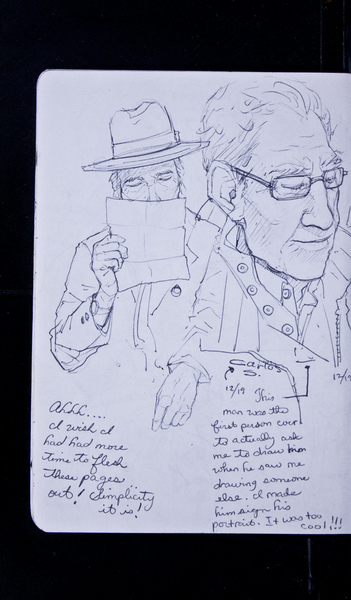 Ahhh....
I wish I
had had more
time to flesh
these pages
out! Simplicity
it is!
Carlos
S.
12/19
12/19
This
man was the
first person ever
to actually ask
me to draw him
when he saw me
drawing someone
else. I made
him sign his
portrait. It was too
cool!!!